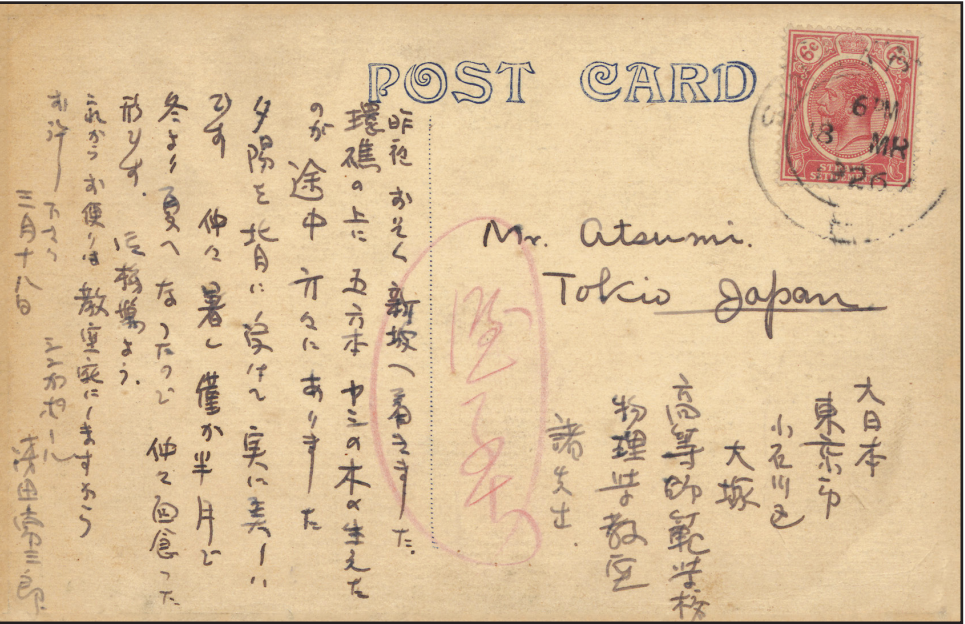 POST CARD
6c 6c
STRAITS
SETTLEMENTS
6 PM
18 MR
26
Mr. Atsumi.
Tokio Japan
大日本
東京市
小石川区
大塚
高等師範学校
物理学教室
諸先生
昨夜 おそく 新坡へ着きました。
環礁の上に 五六本 ヤシの木の生えた
のが 途中 方々にありました
夕陽を 背に 受けて 実に美しい
です 仲々 暑し 僅か半月で
冬より夏へ なったので 仲々 面食った
形です。
これから お便りは 教室宛にしますから
お許し 下さい
三月十八日
シンガポール